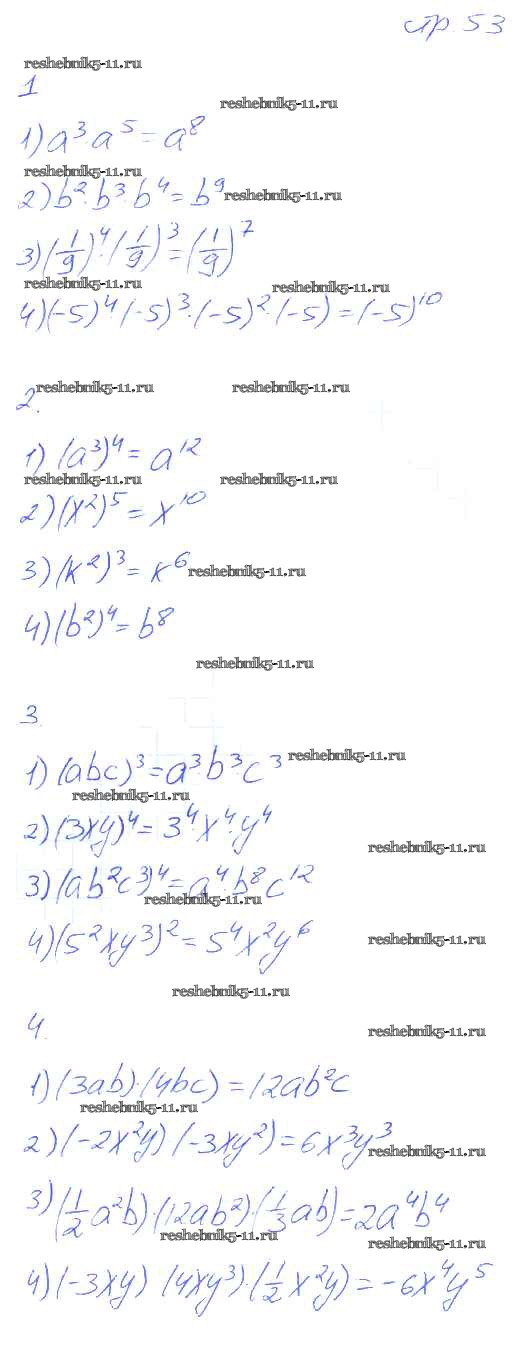 стр. 53
reshebnik5-11.ru
1
reshebnik5-11.ru
1) a³·a⁵=a⁸
reshebnik5-11.ru
2) b²·b³·b⁴=b⁹ reshebnik5-11.ru
3) (1/9)⁴·(1/9)³=(1/9)⁷
reshebnik5-11.ru reshebnik5-11.ru
4) (-5)⁴(-5)³·(-5)²·(-5)=(-5)¹⁰
2. reshebnik5-11.ru reshebnik5-11.ru
1) (a³)⁴=a¹²
reshebnik5-11.ru reshebnik5-11.ru
2) (x²)⁵=x¹⁰
3) (k²)³=k⁶ reshebnik5-11.ru
4) (b²)⁴=b⁸
reshebnik5-11.ru
3.
1) (abc)³=a³·b³·c³ reshebnik5-11.ru
reshebnik5-11.ru
2) (3xy)⁴=3⁴·x⁴·y⁴
reshebnik5-11.ru
3) (ab²c³)⁴=a⁴·b⁸c¹²
reshebnik5-11.ru
4) (5²xy³)²=5⁴x²y⁶ reshebnik5-11.ru
reshebnik5-11.ru
4. reshebnik5-11.ru
1) (3ab)·(4bc)=12ab²c
reshebnik5-11.ru
2) (-2x²y)(-3xy²)=6x³y³
reshebnik5-11.ru
3) (1/2a²b)·(12ab²)·(1/3ab)=2a⁴b⁴
reshebnik5-11.ru reshebnik5-11.ru
4) (-3xy)(4xy³)·(1/2x²y)=-6x⁴y⁵